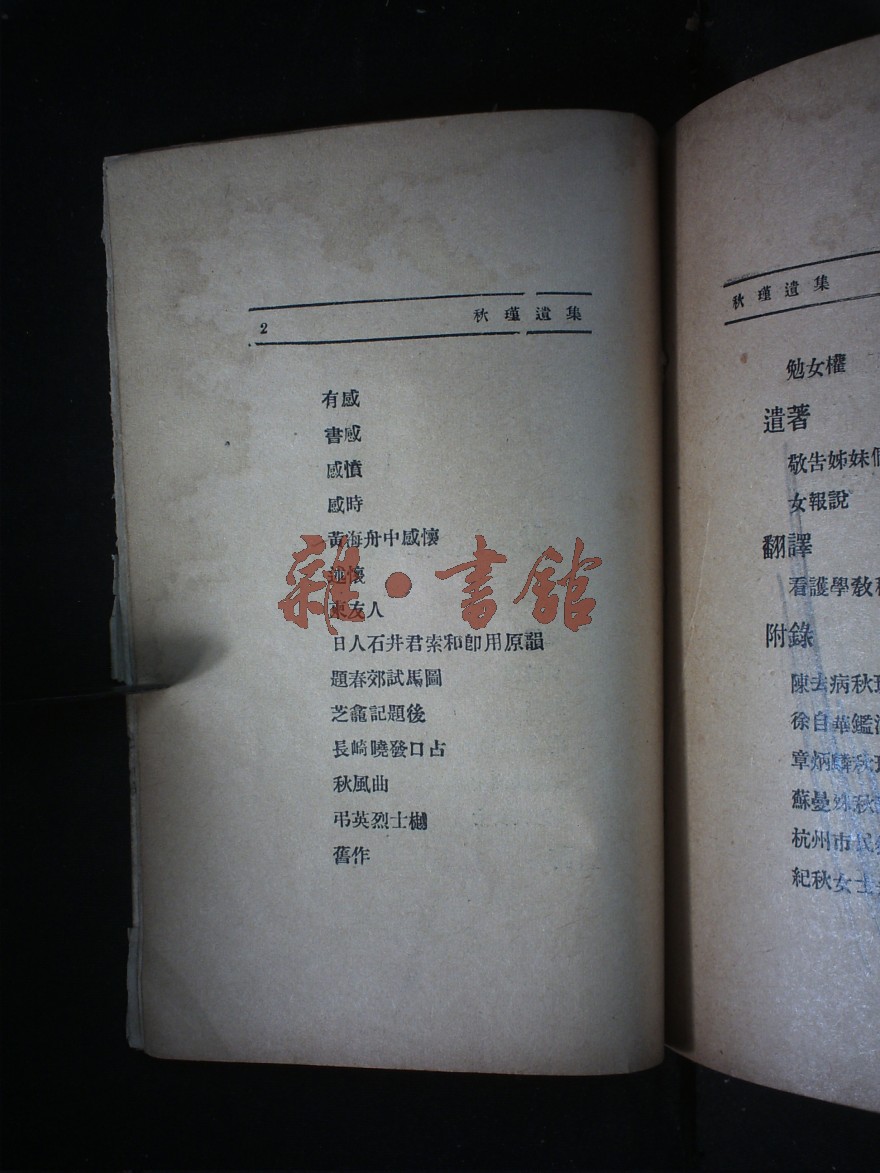 2 秋瑾遺集
有感
書感
感憤
感時
黃海舟中感懷
述懷
柬友人
日人石井君索和卽用原韻
題春郊試馬圖
芝龕記題後
長崎曉發口占
秋風曲
弔吳烈士樾
舊作
雜·書館
秋瑾遺集
勉女權
遺著
敬告姊妹
女報說
翻譯
看護學教
附錄
陳去病秋
徐自華鑑
章炳麟秋
蘇曼殊秋
杭州市民
紀秋女士